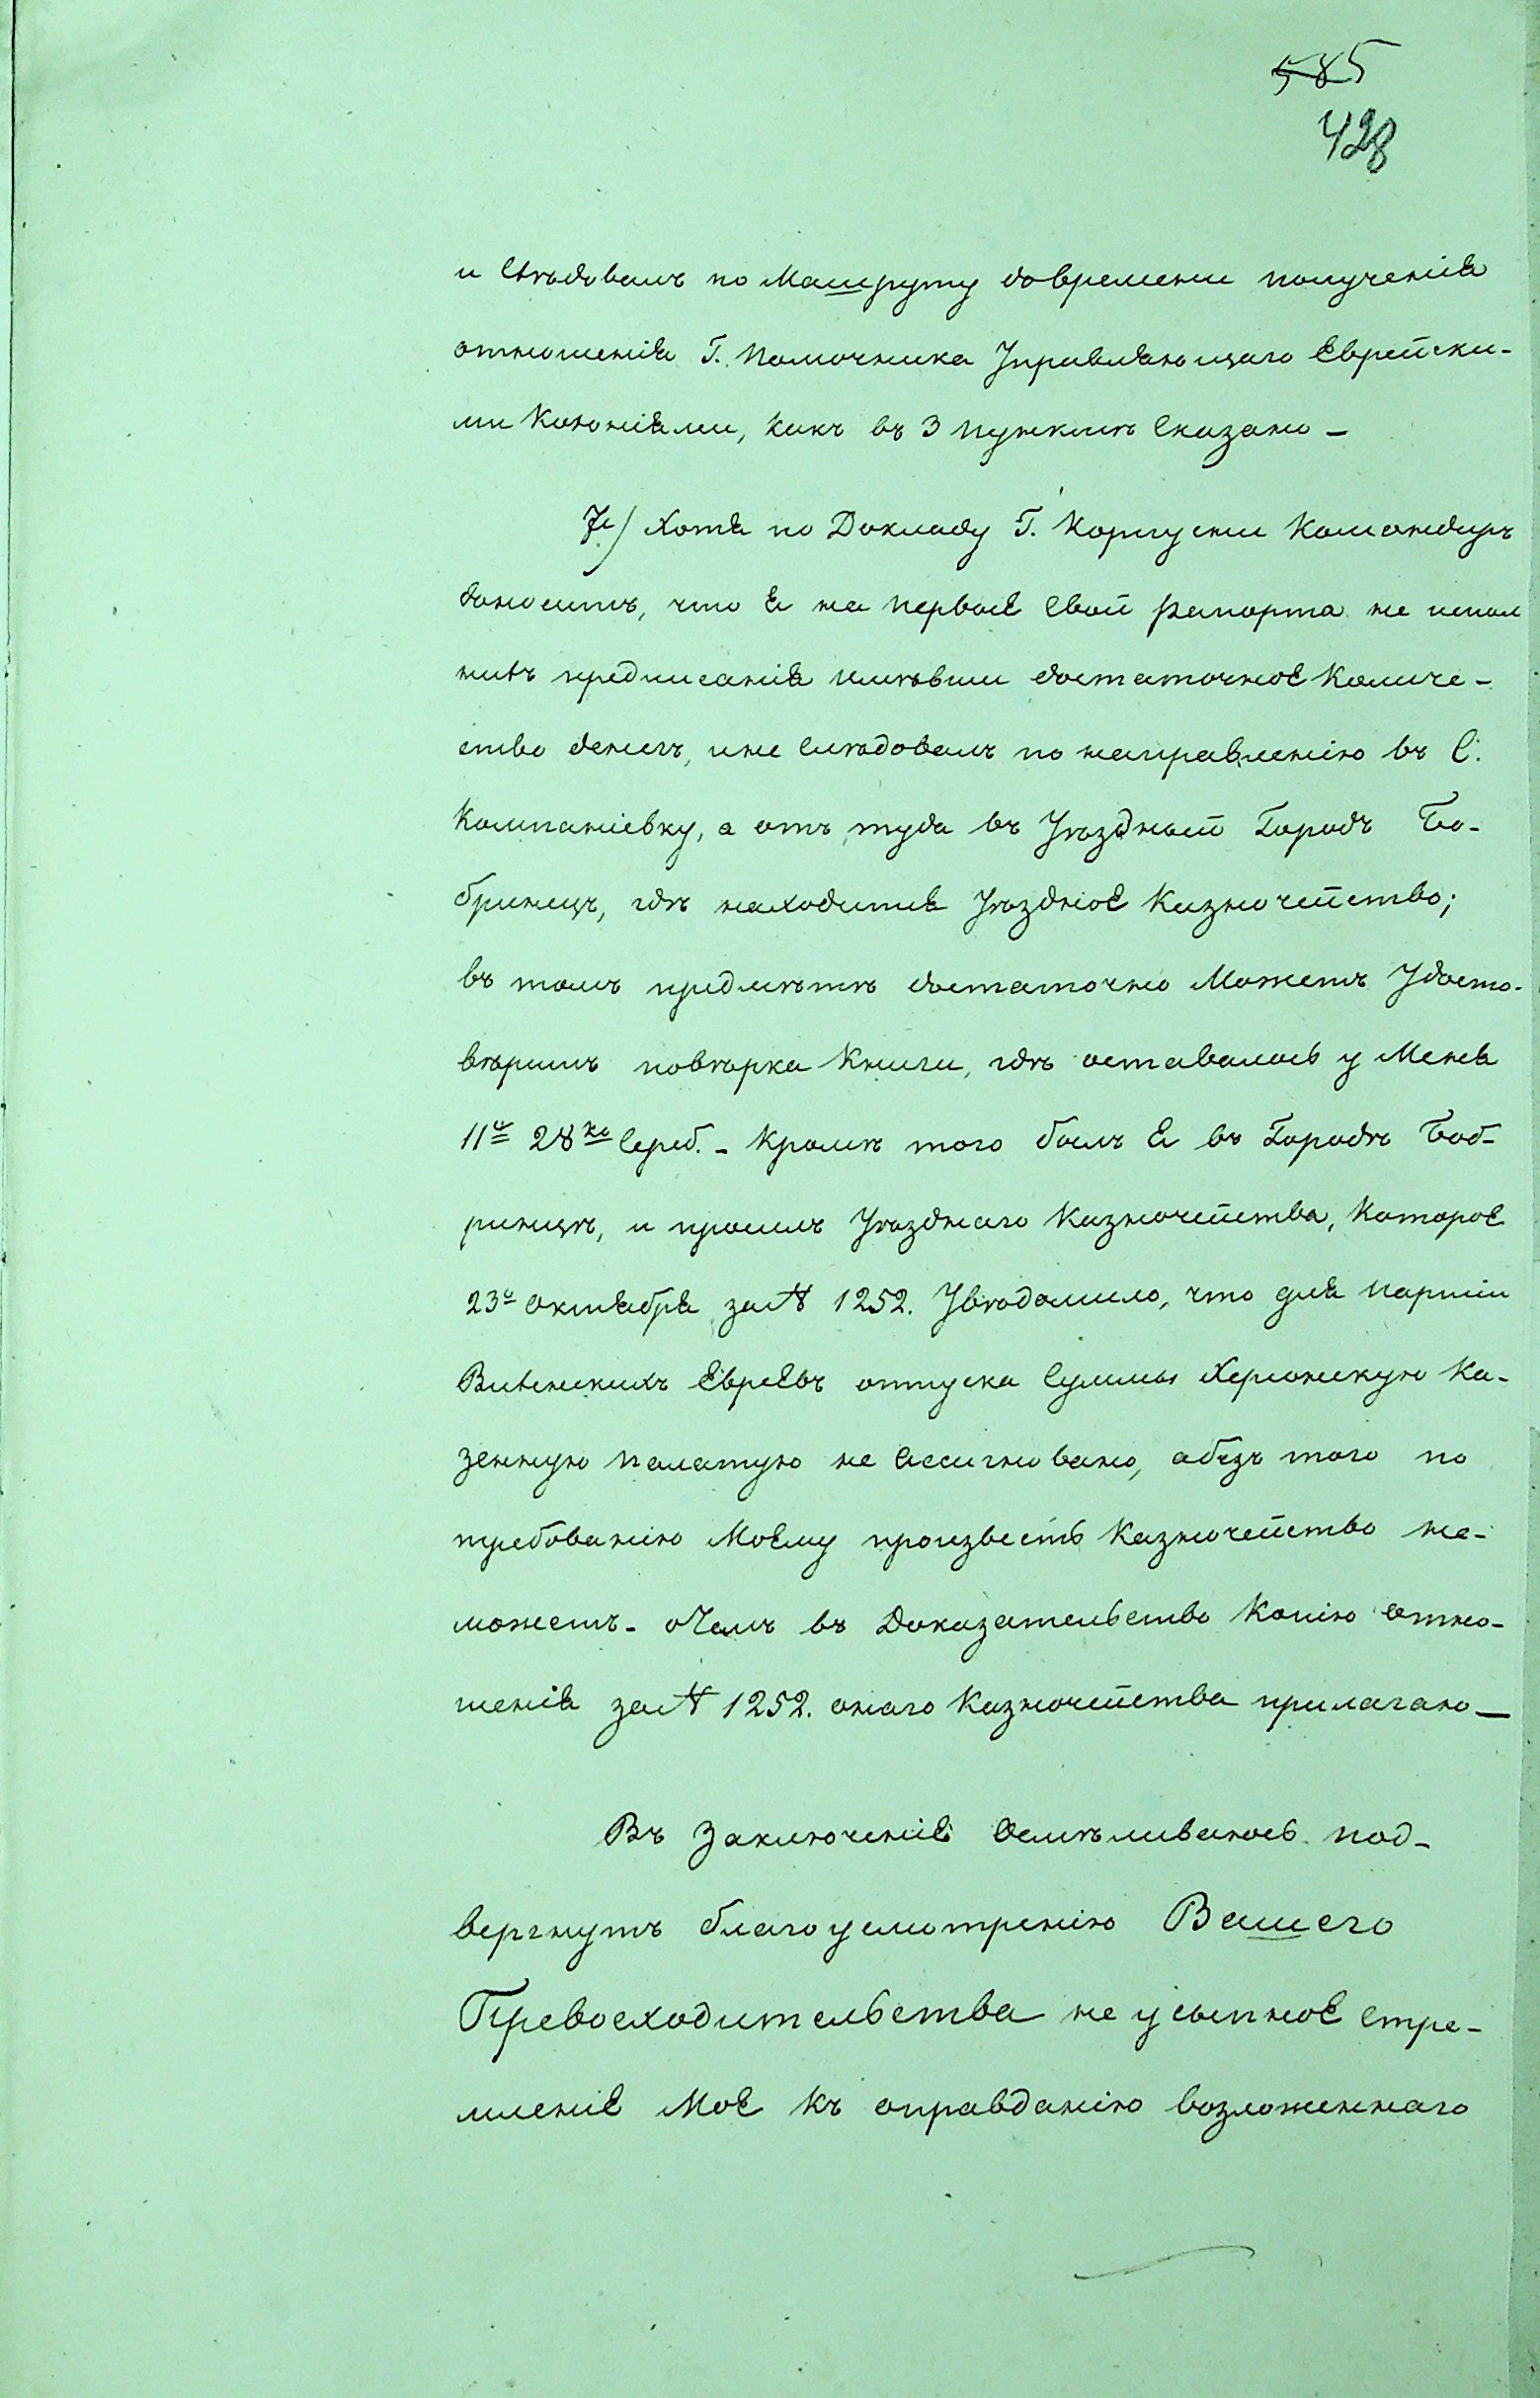 585
428
и Слѣдовалъ по Машруту довремени полученія
отношенія Г. Помочника Управляющаго Еврейски-
ми Колоніями, какъ въ 3 пунктѣ Сказано -
7е/ Хотя по Докладу Г. Коргусни Командиръ
доноситъ, что я на первое Свои рапорта не испол
нивъ предписанія имѣвши достаточное Количе-
ство денегъ, ине Слѣдовалъ по направленію въ С:
Компаніевку, а отъ туда въ Уѣздный Городъ Бо-
бринецъ, гдѣ находится Уѣздное Казначейство;
въ томъ предметѣ достаточно Можетъ Удосто-
вѣрить повѣрка Книги, гдѣ оставалось у Меня
11р 28ко Сереб. - Кромѣ того былъ я въ Городѣ Боб-
ринцѣ, и просилъ Уѣзднаго Казначейства, Которое
23о Октября за № 1252. Увѣдомило, что для партіи
Виленскихъ Евреевъ отпуска Суммы Херсонскую Ка-
зенную палатую не Ассигновано, абезъ того по
требованію Моему произвесть Казначейство не-
можетъ - очемъ въ Доказательство Копію отно-
шенія за № 1252. онаго Казначейства прилагаю —
Въ Заключеніе Осмѣливаюсь под-
вергнутъ благоусмотренію Вашего
Превосходительства не усыпное Стре-
мленіе Мое Къ оправданію возложеннаго